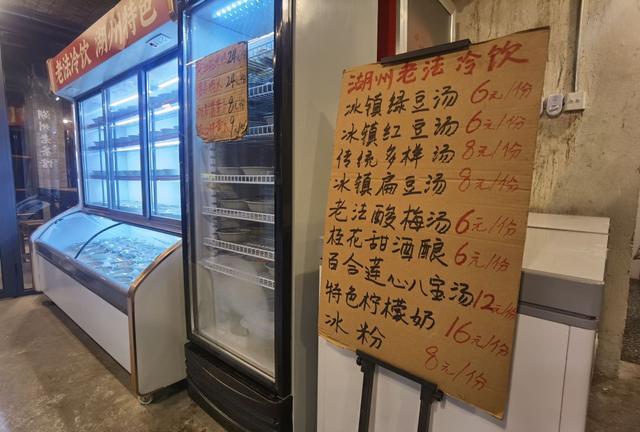 老法冷饮 湖州特色
24元
24元
8元
9元
湖州老法冷饮
冰镇绿豆汤 6元/份
冰镇红豆汤 6元/份
传统多样汤 8元/份
冰镇扁豆汤 8元/份
老法酸梅汤 6元/份
桂花甜酒酿 6元/份
百合莲心八宝汤 12元/份
特色柠檬奶 16元/份
冰粉 8元/份